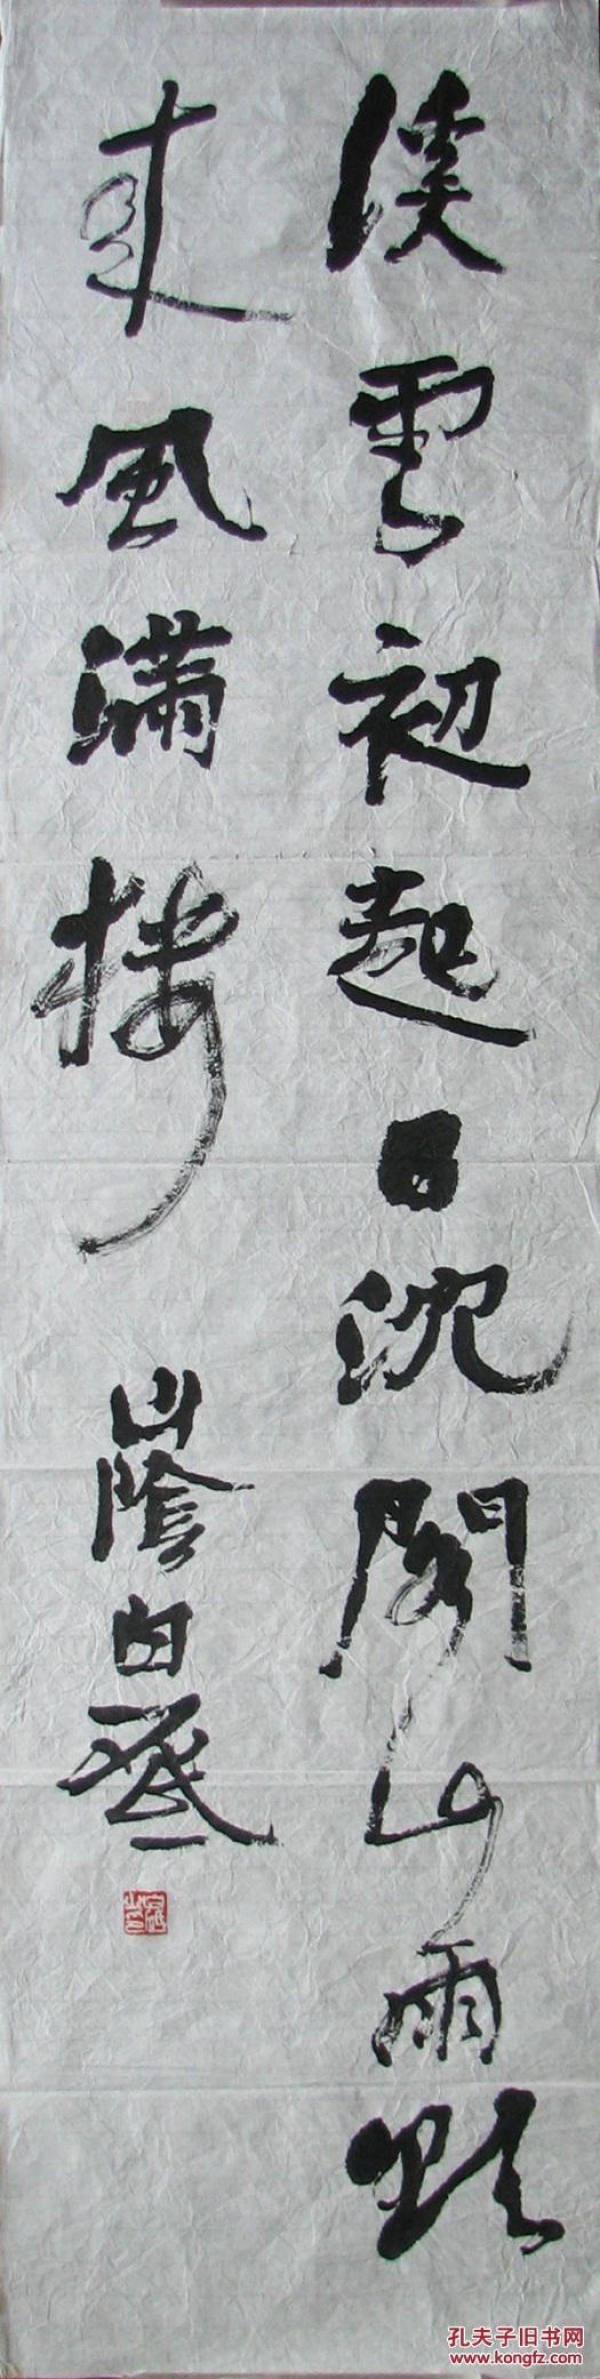 溪雲初起日沈閣山雨欲
来風满楼
山陰白砥
孔夫子旧书网
www.kongfz.com